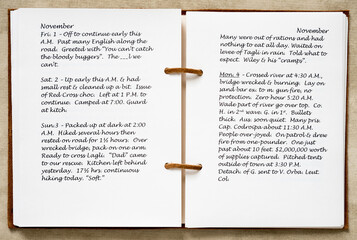 November
Fri. 1 - Off to continue early this
A.M. Past many English along the
road. Greeted with "You can't catch
the bloody buggers". The __l we
can't.
Sat. 2 - Up early this A.M. & had
small rest & cleaned up a bit. Issue
of Red Cross choc. Left at 1 P.M. to
continue. Camped at 7:00. Guard
at kitch.
Sun.3 - Packed up at dark at 2:00
A.M. Hiked several hours then
rested on road for 1½ hours. Over
wrecked bridge, pack on one arm.
Ready to cross Lagli. "Dad" came
to our rescue. Kitchen left behind
yesterday. 17½ hrs. continuous
hiking today. "Soft."
November
Many were out of rations and had
nothing to eat all day. Waited on
levee of Tagli in rain. Told what to
expect. Wiley & his "cramps".
Mon. 4 - Crossed river at 4:30 A.M.,
bridge wrecked & burning. Lay on
sand bar ex. to m. gun fire, no
protection. Zero hour 5:20 A.M.
Wade part of river go over top. Co.
H. in 2nd wave. G. in 1st. Bullets
thick. Aus. soon quiet. Many pris.
Cap. Codroipa about 11:30 A.M.
People over-joyed. On patrol & drew
fire from one-pounder. One just
past about 10 feet. $2,000,000 worth
of supplies captured. Pitched tents
outside of town at 3:30 P.M.
Detach. of G. sent to V. Orba. Leut.
Col.